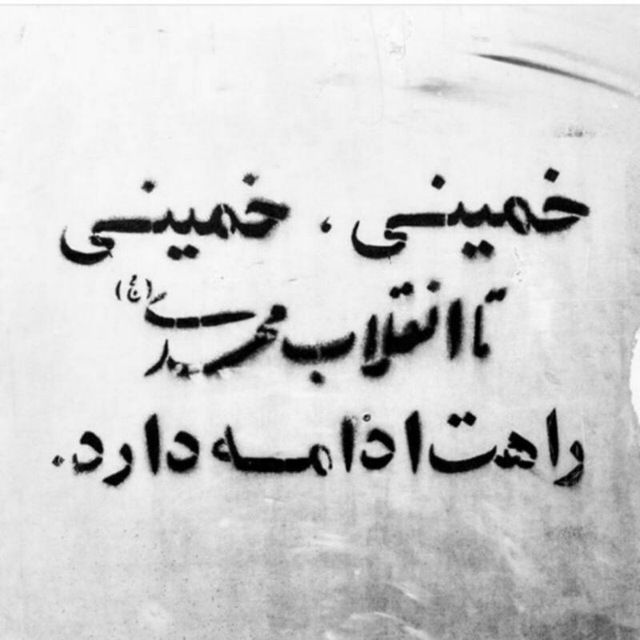 خمینی . خمینی
تا انقلاب مهدی (ع)
راهت ادامه دارد.